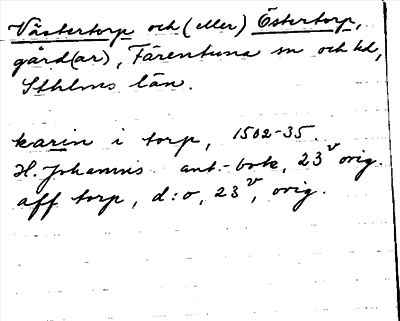 Västertorp och (eller) Östertorp,
gård(ar), Färentuna sn och hd,
Sthlms län.
karin i torp, 1502-35.
H. Johannis ant.-bok, 23v orig.
aff torp, d:o, 23v, orig.